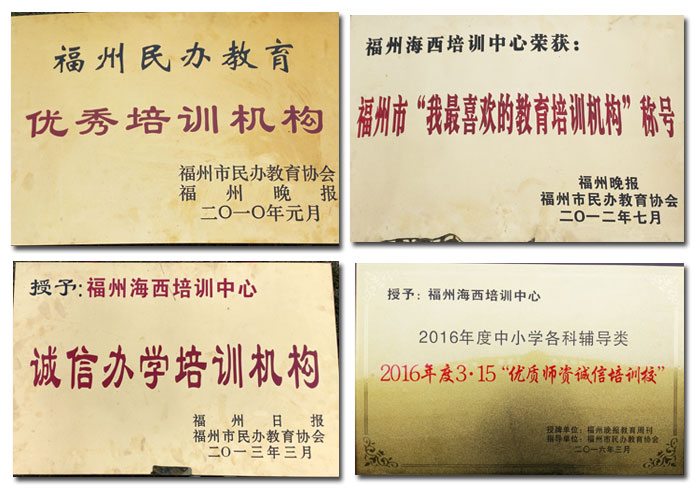 福州民办教育
优秀培训机构
福州市民办教育协会
福州晚报
二〇一〇年元月
福州海西培训中心荣获:
福州市“我最喜欢的教育培训机构”称号
福州晚报
福州市民办教育协会
二〇一二年七月
授予:福州海西培训中心
诚信办学培训机构
福州日报
福州市民办教育协会
二〇一三年三月
授予:福州海西培训中心
2016年度中小学各科辅导类
2016年度3·15“优质师资诚信培训校”
授牌单位:福州晚报教育周刊
指导单位:福州市民办教育协会
二〇一六年三月